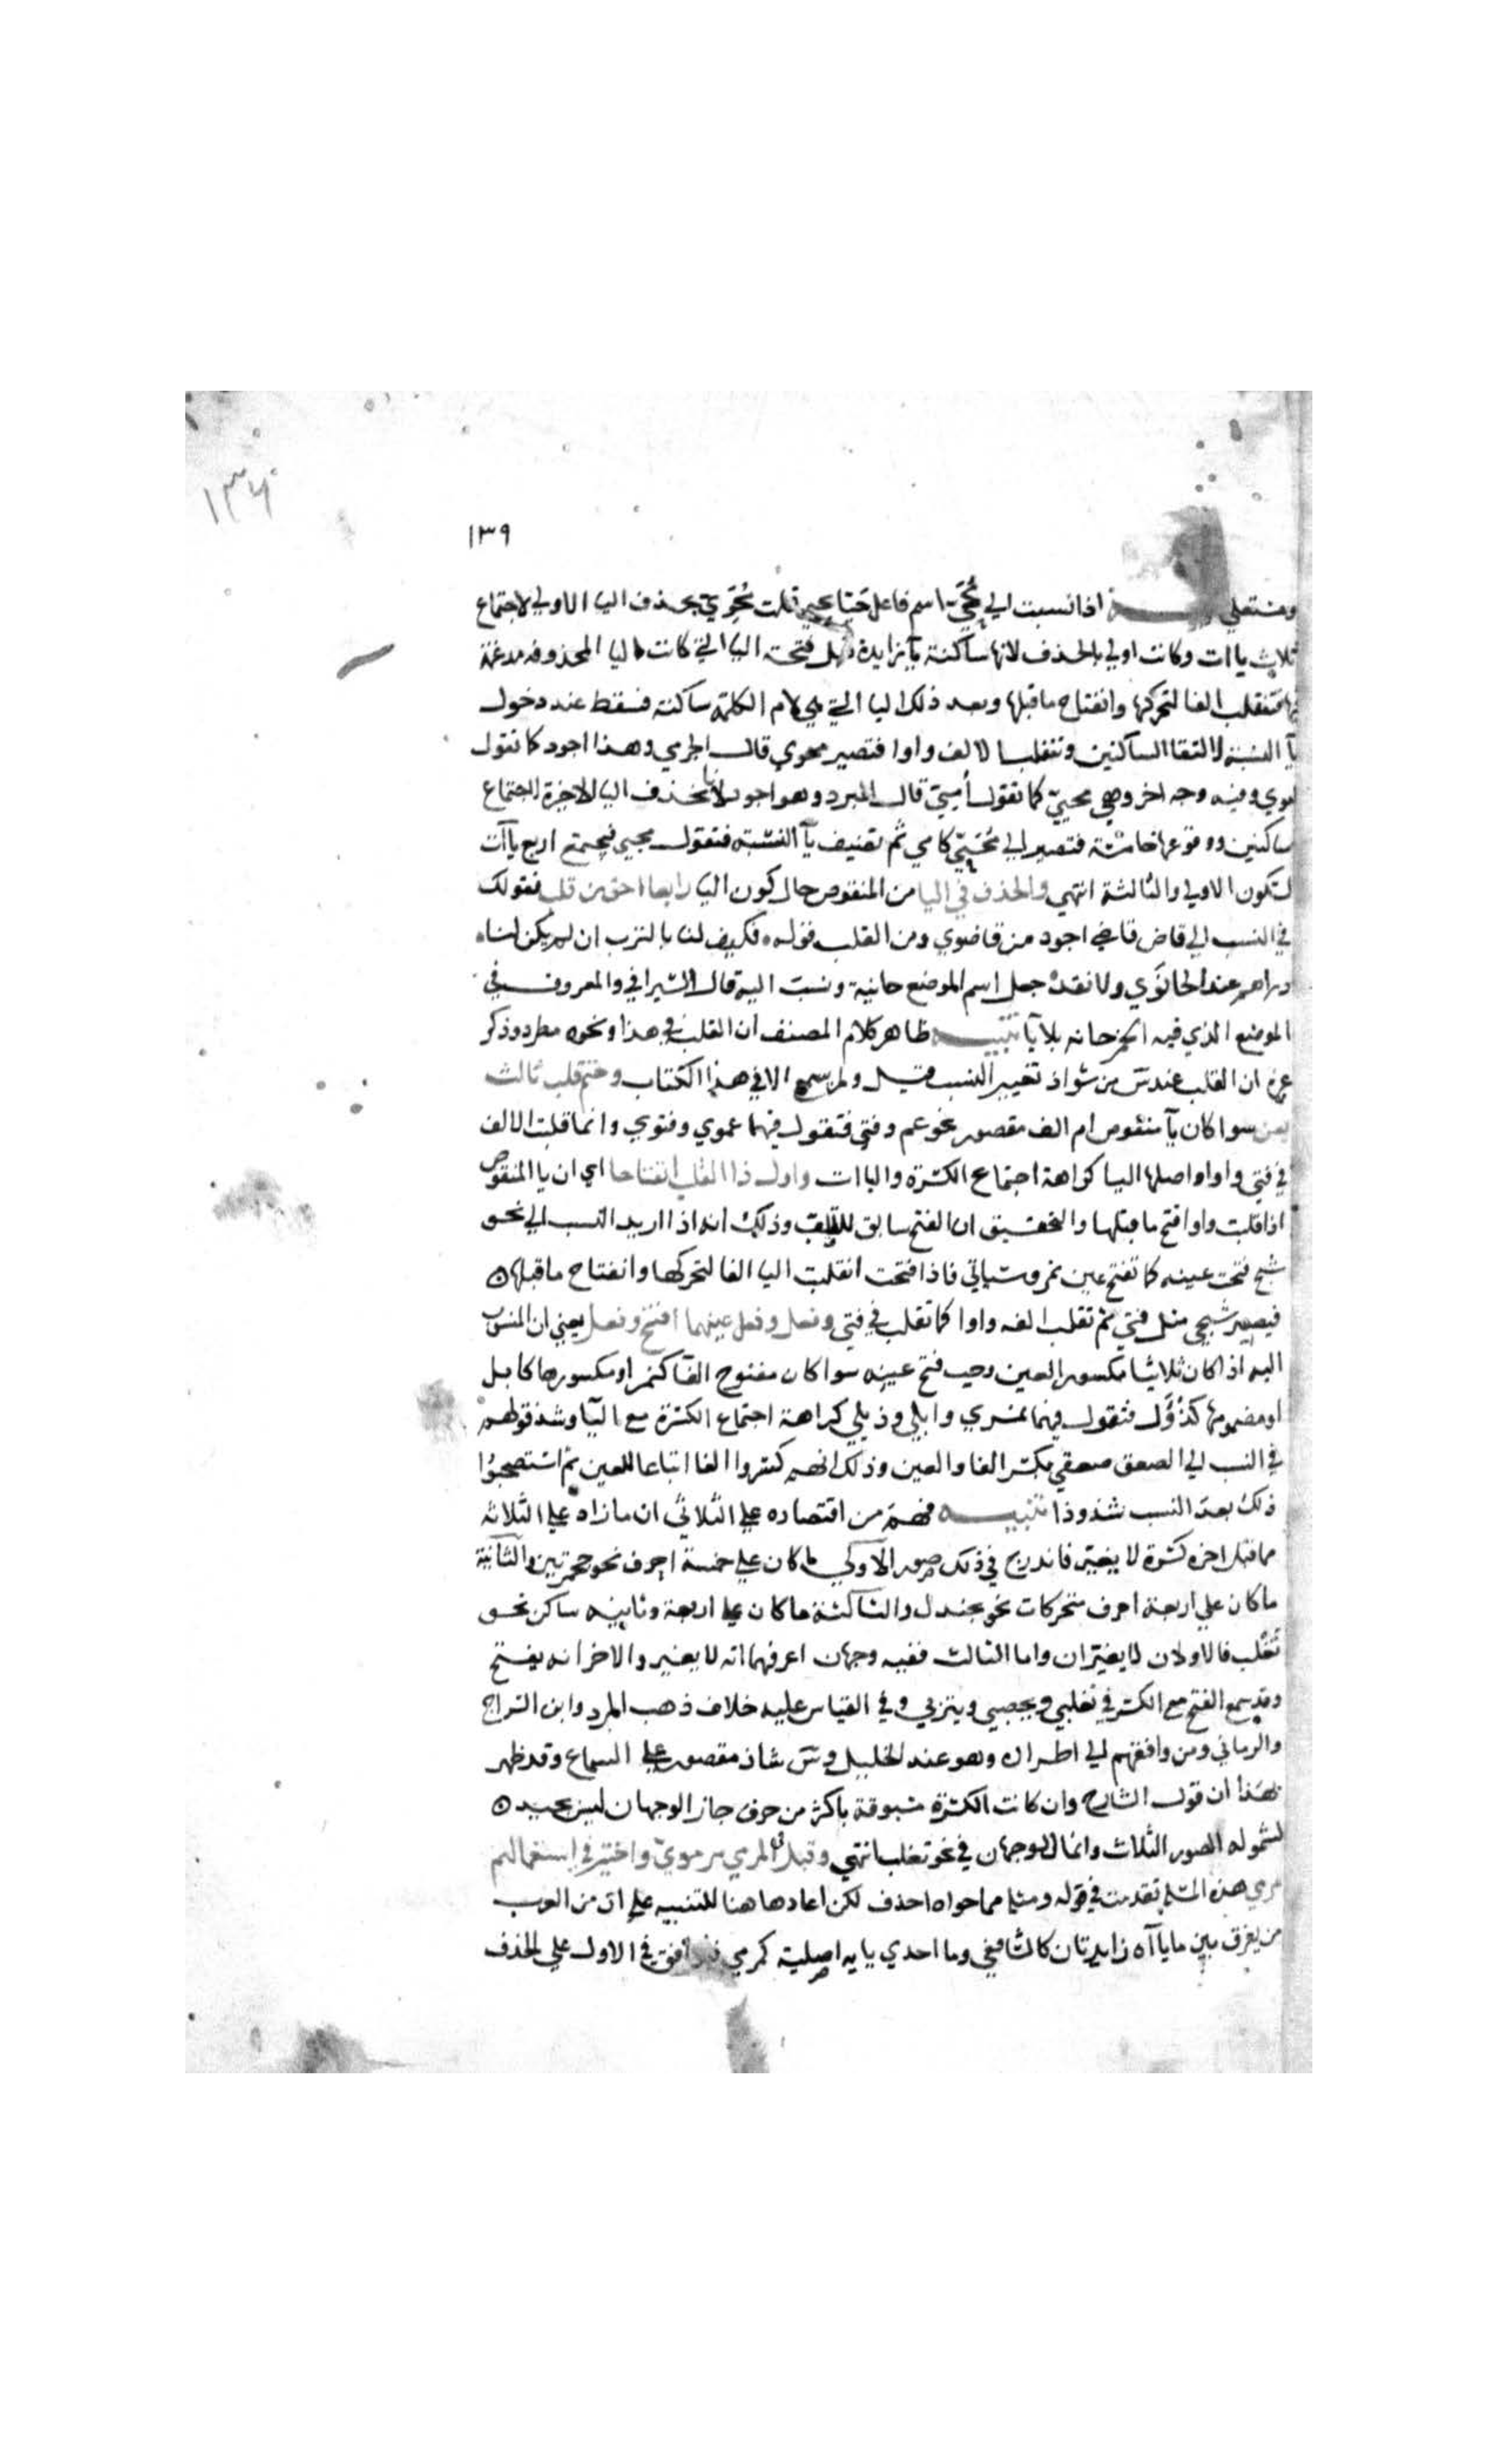 ١٣٩
ومستعلي اذا نسبت الي محيي اسم فاعل حيا يحيي قلت محوي بحذف اليا الاولي لاجتماع
ثلاث ياات وكانت اولي بالحذف لانها ساكنة زايدة فتحة اليا التي كانت اليا المحذوفه مدغمة
فتقلب الفا لتحركها وانفتاح ما قبلها وبعد ذلك اليا التي هي لام الكلمة ساكنة فسقط عند دخول
يآ النسبة لالتقا الساكنين وتنقلب الالف واوا فتصير محوي قال الجرمي وهذا اجود كا تقول
اموي وفيه وجه اخر وهي محيي كما تقول أميي قال المبرد وهو اجود لانا نحذف اليا الاخيرة لاجتماع
ساكنين ووقوعها خامسة فتصير الي محيي كامي ثم تضيف يآ النسبة فتقول محيي فيجتمع اربع ياآت
لتكون الاولي والثالثة انتهي والحذف في اليا من المنقوص حال كون اليا رابعا احق من قلب فقولك
في النسب الي قاض قاضي اجود من قاضوي ومن القلب قوله فكيف لنا بالشرب ان لم يكن لنا
دراهم عند الحانوي ولا نقد جعل اسم الموضع حانية ونسب اليه قال السيرافي والمعروف في
الموضع الذي فيه الخمر حانه بلا يآ تنبيه ظاهر كلام المصنف ان القلب في هذا ونحوه مطرد وذكر
ان القلب عند س من شواذ تغيير النسب قيل ولم يسمع الا في هذا الكتاب وحتم قلب ثالث
يعن سوا كان يآ منقوص ام الف مقصور نحو عم وفتي فتقول فيهما عموي وفتوي وانما قلبت الالف
في فتي واوا واصلها اليا كراهة اجتماع الكسرة والياات واول ذا القلب انفتاحا اي ان يا المنقوص
اذا قلبت واوا فتح ما قبلها والتحقيق ان الفتح سابق للقلب وذلك انه اذا اريد النسب الي نحو
شج فتحت عينه كما تفتح عين نمر وسياتي فاذا فتحت انقلبت اليا الفا لتحركها وانفتاح ما قبلها
فيصير شجي مثل فتي ثم تقلب الفه واوا كما تقلب في فتي وفعل وفعل عينهما افتح وفعل يعني ان المنسوب
اليه اذا كان ثلاثيا مكسور العين وجب فتح عينه سوا كان مفتوح الفآ كنمر او مكسورها كابل
او مضمومها كدؤل فتقول فيهما نمري وابلي ودؤلي كراهة اجتماع الكسرة مع اليآ وشذ قولهم
في النسب الي الصعق صعقي بكسر الفا والعين وذلك انهم كسروا الفا اتباعا للعين ثم استصحبوا
ذلك بعد النسب شذوذا تنبيه فهم من اقتصاره علي الثلاثي ان ما زاد علي الثلاثة
مما قبل اخره كسرة لا يغير فاندرج في ذلك صور الآولي ما كان علي خمسة احرف نحو جحمرش والثانية
ما كان علي اربعة احرف متحركات نحو جندل والثالثة ما كان علي اربعة وثانيه ساكن نحو
تغلب فالاولان لا يغيران واما الثالث ففيه وجهان اعرفهما انه لا يغير والاخر انه يفتح
وقد سمع الفتح مع الكسر في تغلبي ويحصبي ويثربي وفي القياس عليه خلاف ذهب المبرد وابن السراج
والرماني ومن وافقهم الي اطراده وهو عند الخليل وس شاذ مقصور علي السماع وقد ظهر
بهذا ان قول الشارح وان كانت الكسرة مسبوقة باكثر من حرف جاز الوجهان ليس بجيد
لشموله الصور الثلاث وانما الوجهان في نحو تغلب انتهي وقيل في المرمي مرموي واختير في استعمالهم
مرمي هذه المسلة تقدمت في قوله ومثله مما حواه احذف لكن اعادها هنا للتنبيه علي ان من العرب
من يفرق بين ما ياآه زايدتان كالشافعي وما احدي يايه اصلية كمرمي فيوافق في الاول علي الحذف